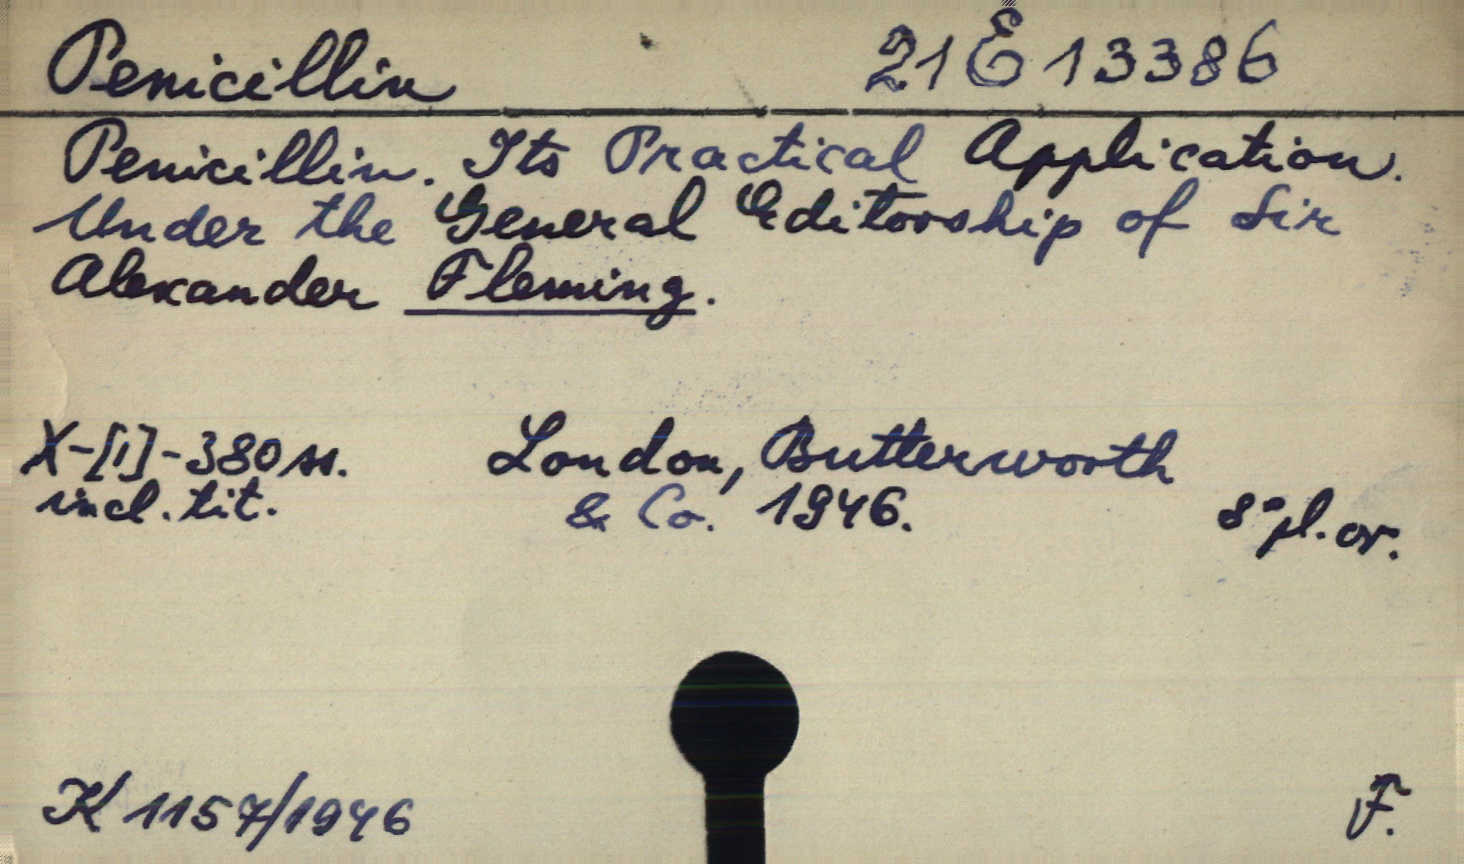 Penicillin 21 E 13386
Penicillin. Its Practical Application.
Under the General Editorship of Sir
Alexander Fleming.
X-[1]-380 ss. London, Butterworth
incl. tit. & Co. 1946. 8° pl. or.
K 1157/1946 F.